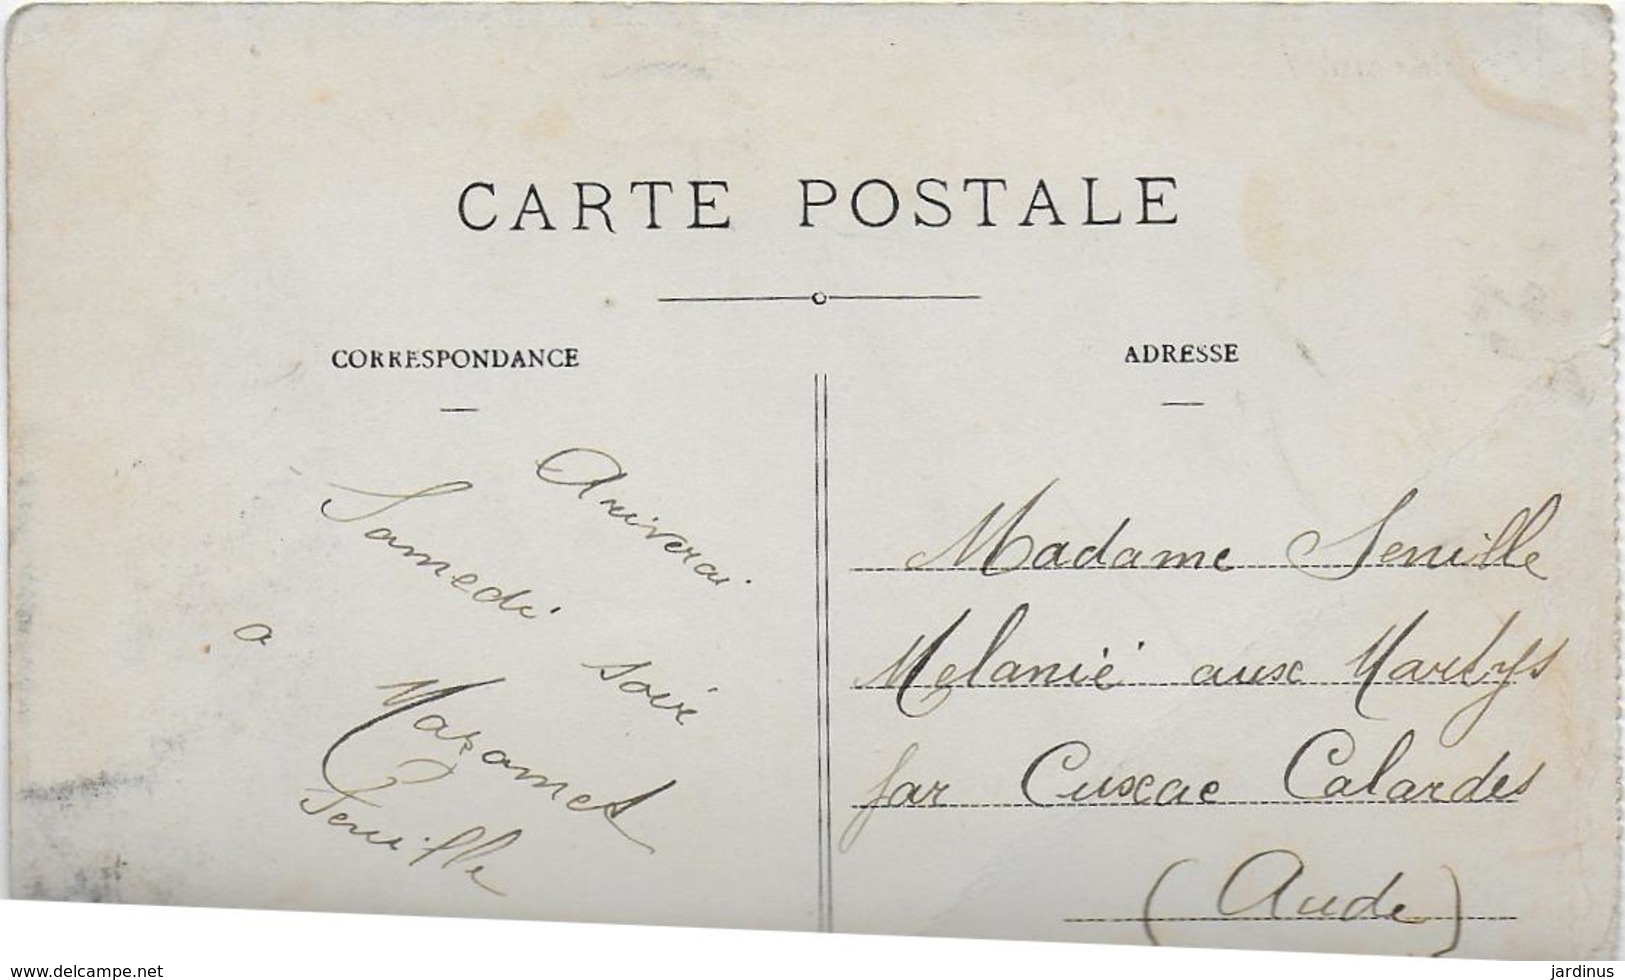 CARTE POSTALE
CORRESPONDANCE
Ariverai
Samedi soir
a Mazamet
Senille
ADRESSE
Madame Senille
Melanie aux Martys
par Cuxac Cabardes
(Aude)
www.delcampe.net
jardinus